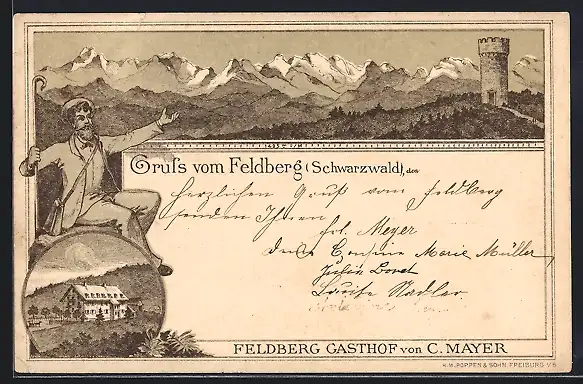 1495 m
Gruss vom Feldberg (Schwarzwald), den
herzlichen Gruß vom Feldberg
senden Ihnen
Frl. Meyer
Cousine Marie Müller
Luise Stadler
FELDBERG GASTHOF von C. MAYER
H.M. POPPEN & SOHN, FREIBURG I/B